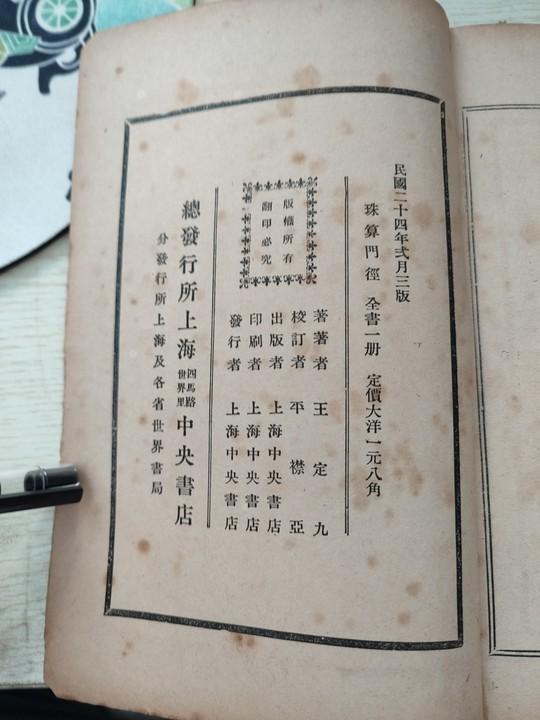 民國二十四年弍月三版
珠算門徑 全書一册 定價大洋一元八角
版權所有
翻印必究
著著者 王定九
校訂者 平襟亞
出版者 上海中央書店
印刷者 上海中央書店
發行者 上海中央書店
總發行所上海四馬路世界里中央書店
分發行所上海及各省世界書局